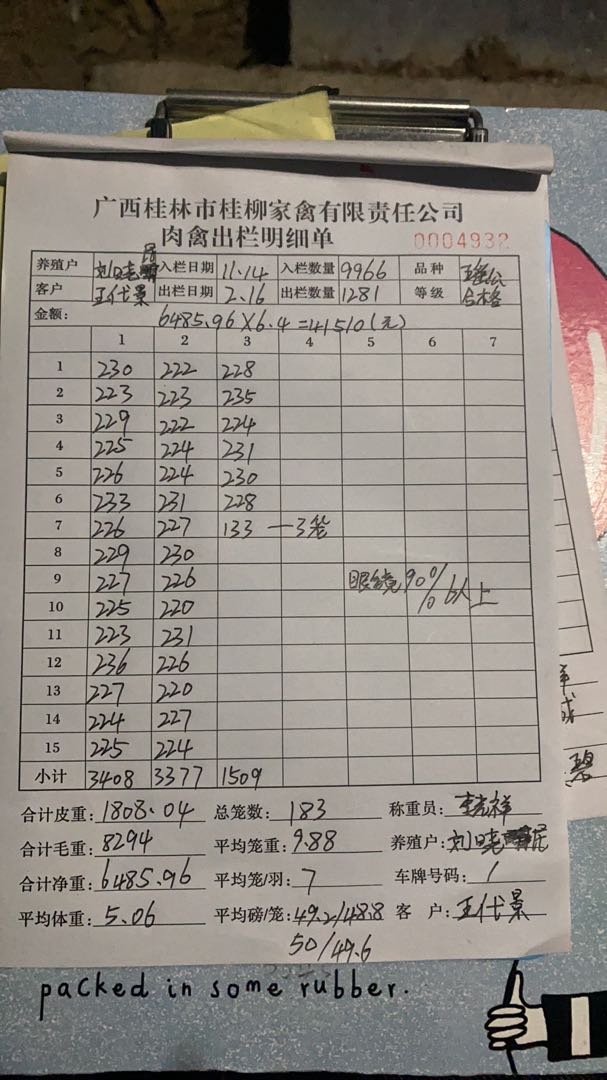 广西桂林市桂柳家禽有限责任公司
肉禽出栏明细单 0004932
养殖户 刘晓尾 入栏日期 11.14 入栏数量 9966 品种
客户 王代景 出栏日期 2.16 出栏数量 1281 等级 合格
金额: 6485.96×6.4=41510(元)
1 2 3 4 5 6 7
1 230 222 228
2 223 223 235
3 229 222 224
4 225 224 231
5 226 224 230
6 233 231 228
7 226 227 133 —3笼
8 229 230
9 227 226 眼镜90%以上
10 225 220
11 223 231
12 236 226
13 227 220
14 224 227
15 225 224
小计 3408 3377 1509
合计皮重: 1808.04 总笼数: 183 称重员:
合计毛重: 8294 平均笼重: 9.88 养殖户: 刘晓尾
合计净重: 6485.96 平均笼/羽: 7 车牌号码: /
平均体重: 5.06 平均磅/笼: 49.2/48.8 客户: 王代景
50/49.6
packed in some rubber.